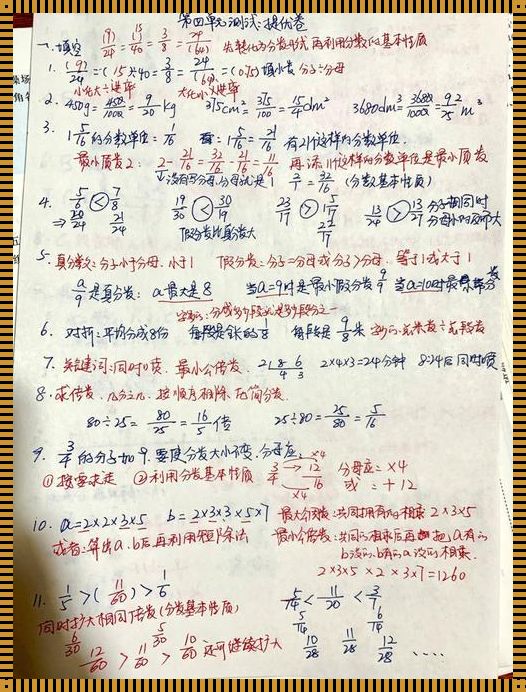 第四单元测试:提优卷
一、填空 (9)/24 = 15/40 = 3/8 = 24/(64) 先转化为分数形式 再利用分数的基本性质
1. (9)/24 = (15)÷40 = 3/8 = 24/(64) = (0.75) 填小数 分子÷分母
小化大÷进率 大化小×进率
2. 450g = 450/1000 = 9/20 kg 375cm² = 375/100 = 15/4 dm² 3680dm³ = 3680/1000 = 92/25 m³
3. 1 5/16 的分数单位: 1/16 看: 1 5/16 = 21/16 有21个这样的分数单位.
最小质数 2. 2 - 21/16 = 32/16 - 21/16 = 11/16 再添11个这样的分数单位是最小质数
没有写分母,分母就是1 2/1 = 32/16 (分数基本性质)
4. 5/6 < 7/8 19/30 < 30/19 23/17 > 1 5/17 13/24 > 13/27 分子相同时
⇒ 20/24 21/24 假分数比真分数大 22/17 分母小的反而大
5. 真分数:分子小于分母. 小于1 假分数:分子=分母或分子>分母. 等于1或大于1
a/9 是真分数: a最大是8 当a=9时是最小假分数 9/9 当a=10时
6. 对折:平均分成8份 每段是全长的 1/8 每段是 9/8 米
7. 关键词:同时喷. 最小公倍数. 2|8 6 2×4×3=24分钟 8:24后同时喷
4 3
8. 求倍数. 几分之几. 按顺序相除. 再约分.
80÷25 = 80/25 = 16/5 倍 25÷80 = 25/80 = 5/16
9. 3/4 的分子加9.要使分数大小不变,分母应: ×4
①按要求走 ②利用分数基本性质 3/4 → 12/16 分母应: ×4
×4 或: +12
10. a=2×2×3×5 b=2×3×3×5×7 最大公因数:共同拥有的相乘 2×3×5
或者:算出a、b后再利用短除法 最小公倍数:共同的相乘后再把a有的
b没的.b有的a没的相乘.
2×3×5×2×3×7=1260
11. 1/5 > (11/60) > 1/6 5/14 < 11/20 < 3/7
同时扩大相同倍数(分数基本性质) 5/14 6/14
6/30 5/30 10/28 11/28 12/28 ....
12/60 > 11/60 > 10/60 还可继续扩大